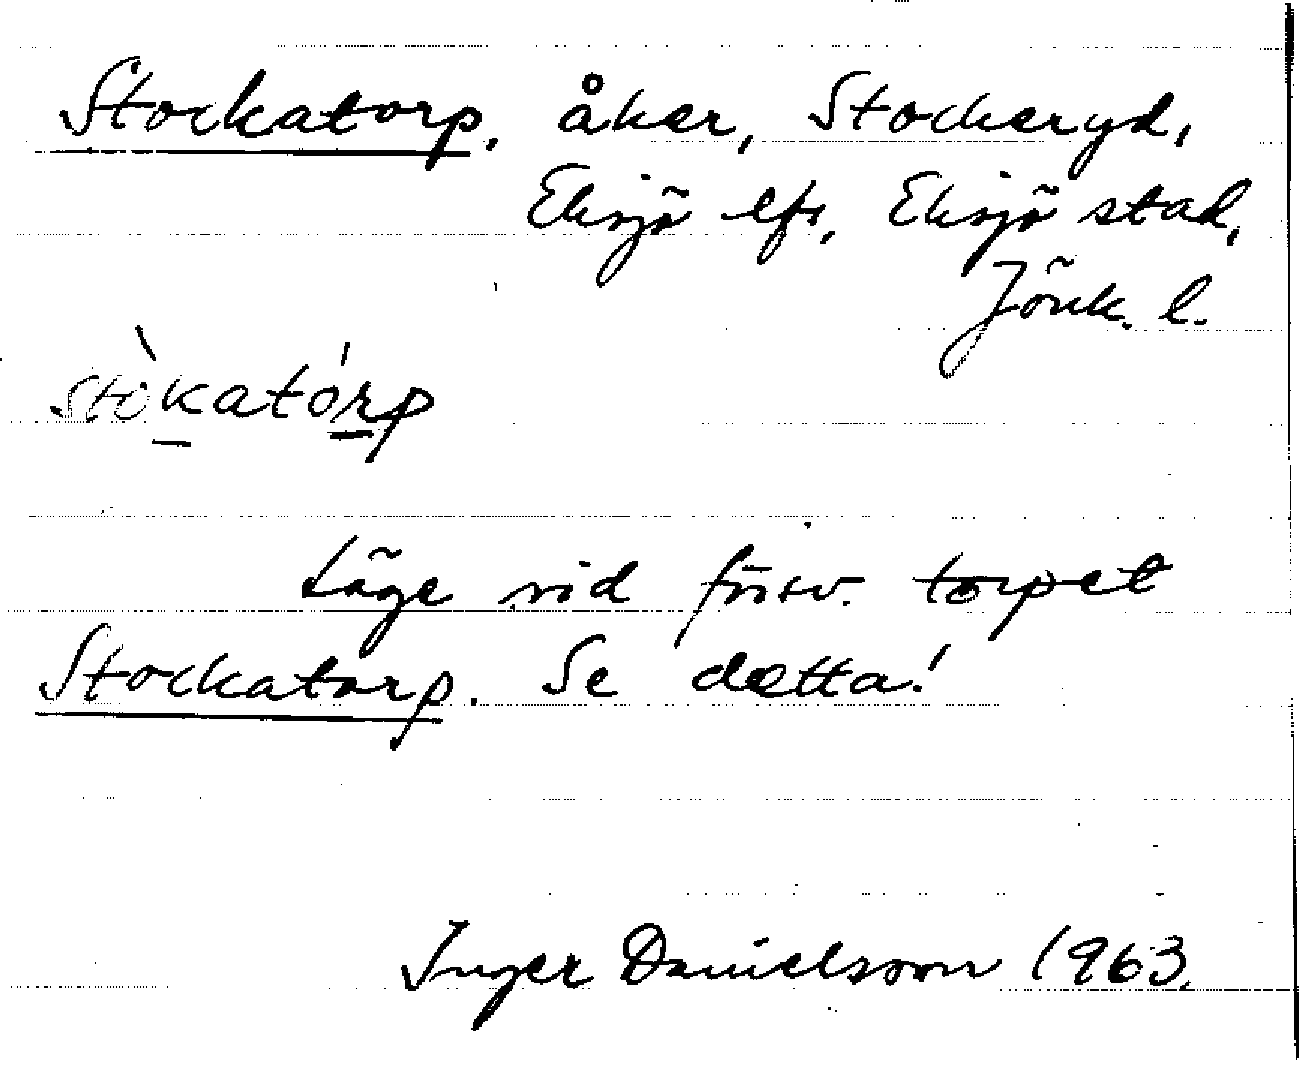 Stockatorp, åker, Stockeryd,
Eksjö lfs, Eksjö stad,
Jönk. l.
stòkatórp
Läge vid försv. torpet
Stockatorp. Se detta!
Inger Danielsson 1963.